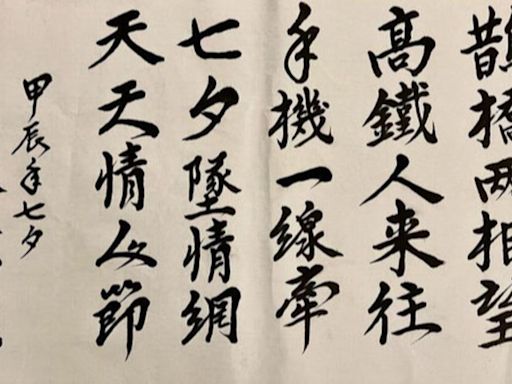 鵲橋两相望
高鐵人来往
手機一線牽
七夕墜情網
天天情人節
甲辰年七夕